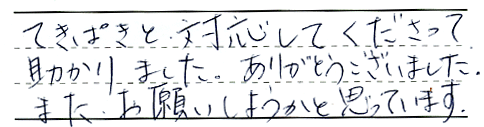 てきぱきと対応してくださって
助かりました。ありがとうございました。
また、お願いしようかと思っています。